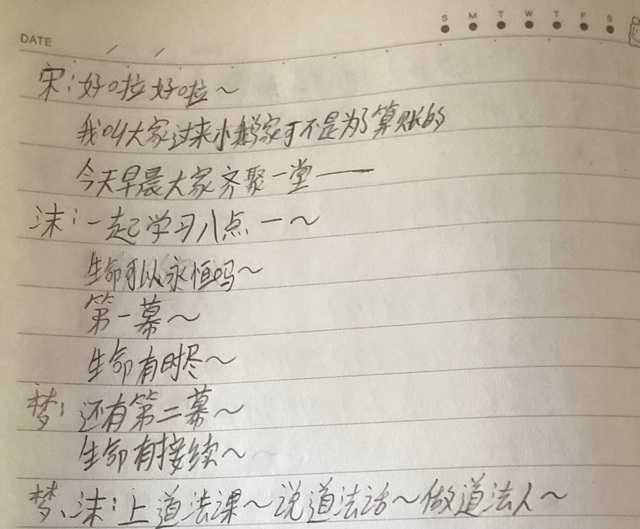 S M T W T F S
DATE
宋：好啦好啦～
我叫大家过来小鹅家可不是为了算账的
今天早晨大家齐聚一堂——
沫：一起学习八点一～
生命可以永恒吗～
第一幕～
生命有时尽～
梦：还有第二幕～
生命有接续～
梦、沫：上道法课～说道法话～做道法人～